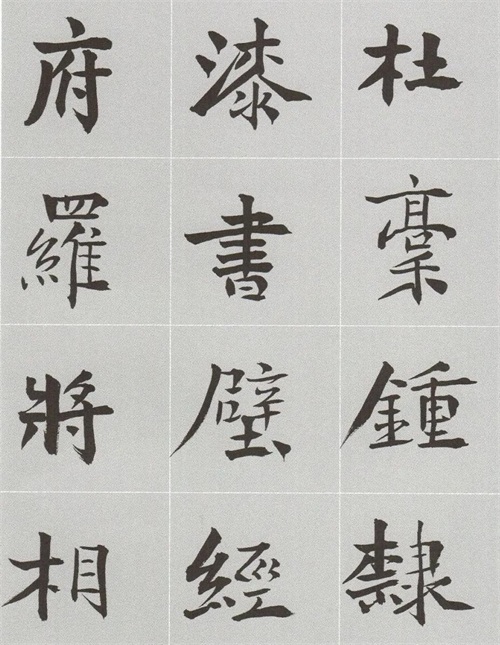 杜稾鍾隸
漆書壁經
府羅將相